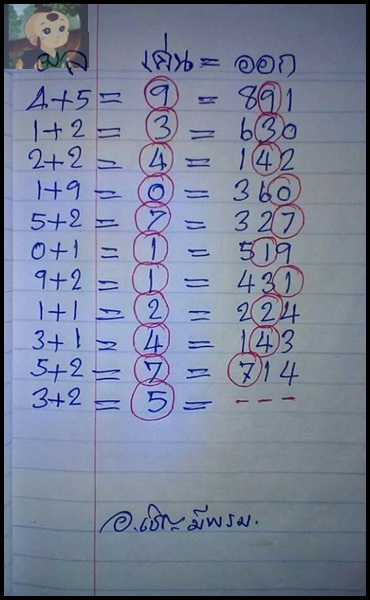 ผล เด่น = ออก
4+5 = 9 = 891
1+2 = 3 = 630
2+2 = 4 = 142
1+9 = 0 = 360
5+2 = 7 = 327
0+1 = 1 = 519
9+2 = 1 = 431
1+1 = 2 = 224
3+1 = 4 = 143
5+2 = 7 = 714
3+2 = 5 = ---
อ. มีพรม.